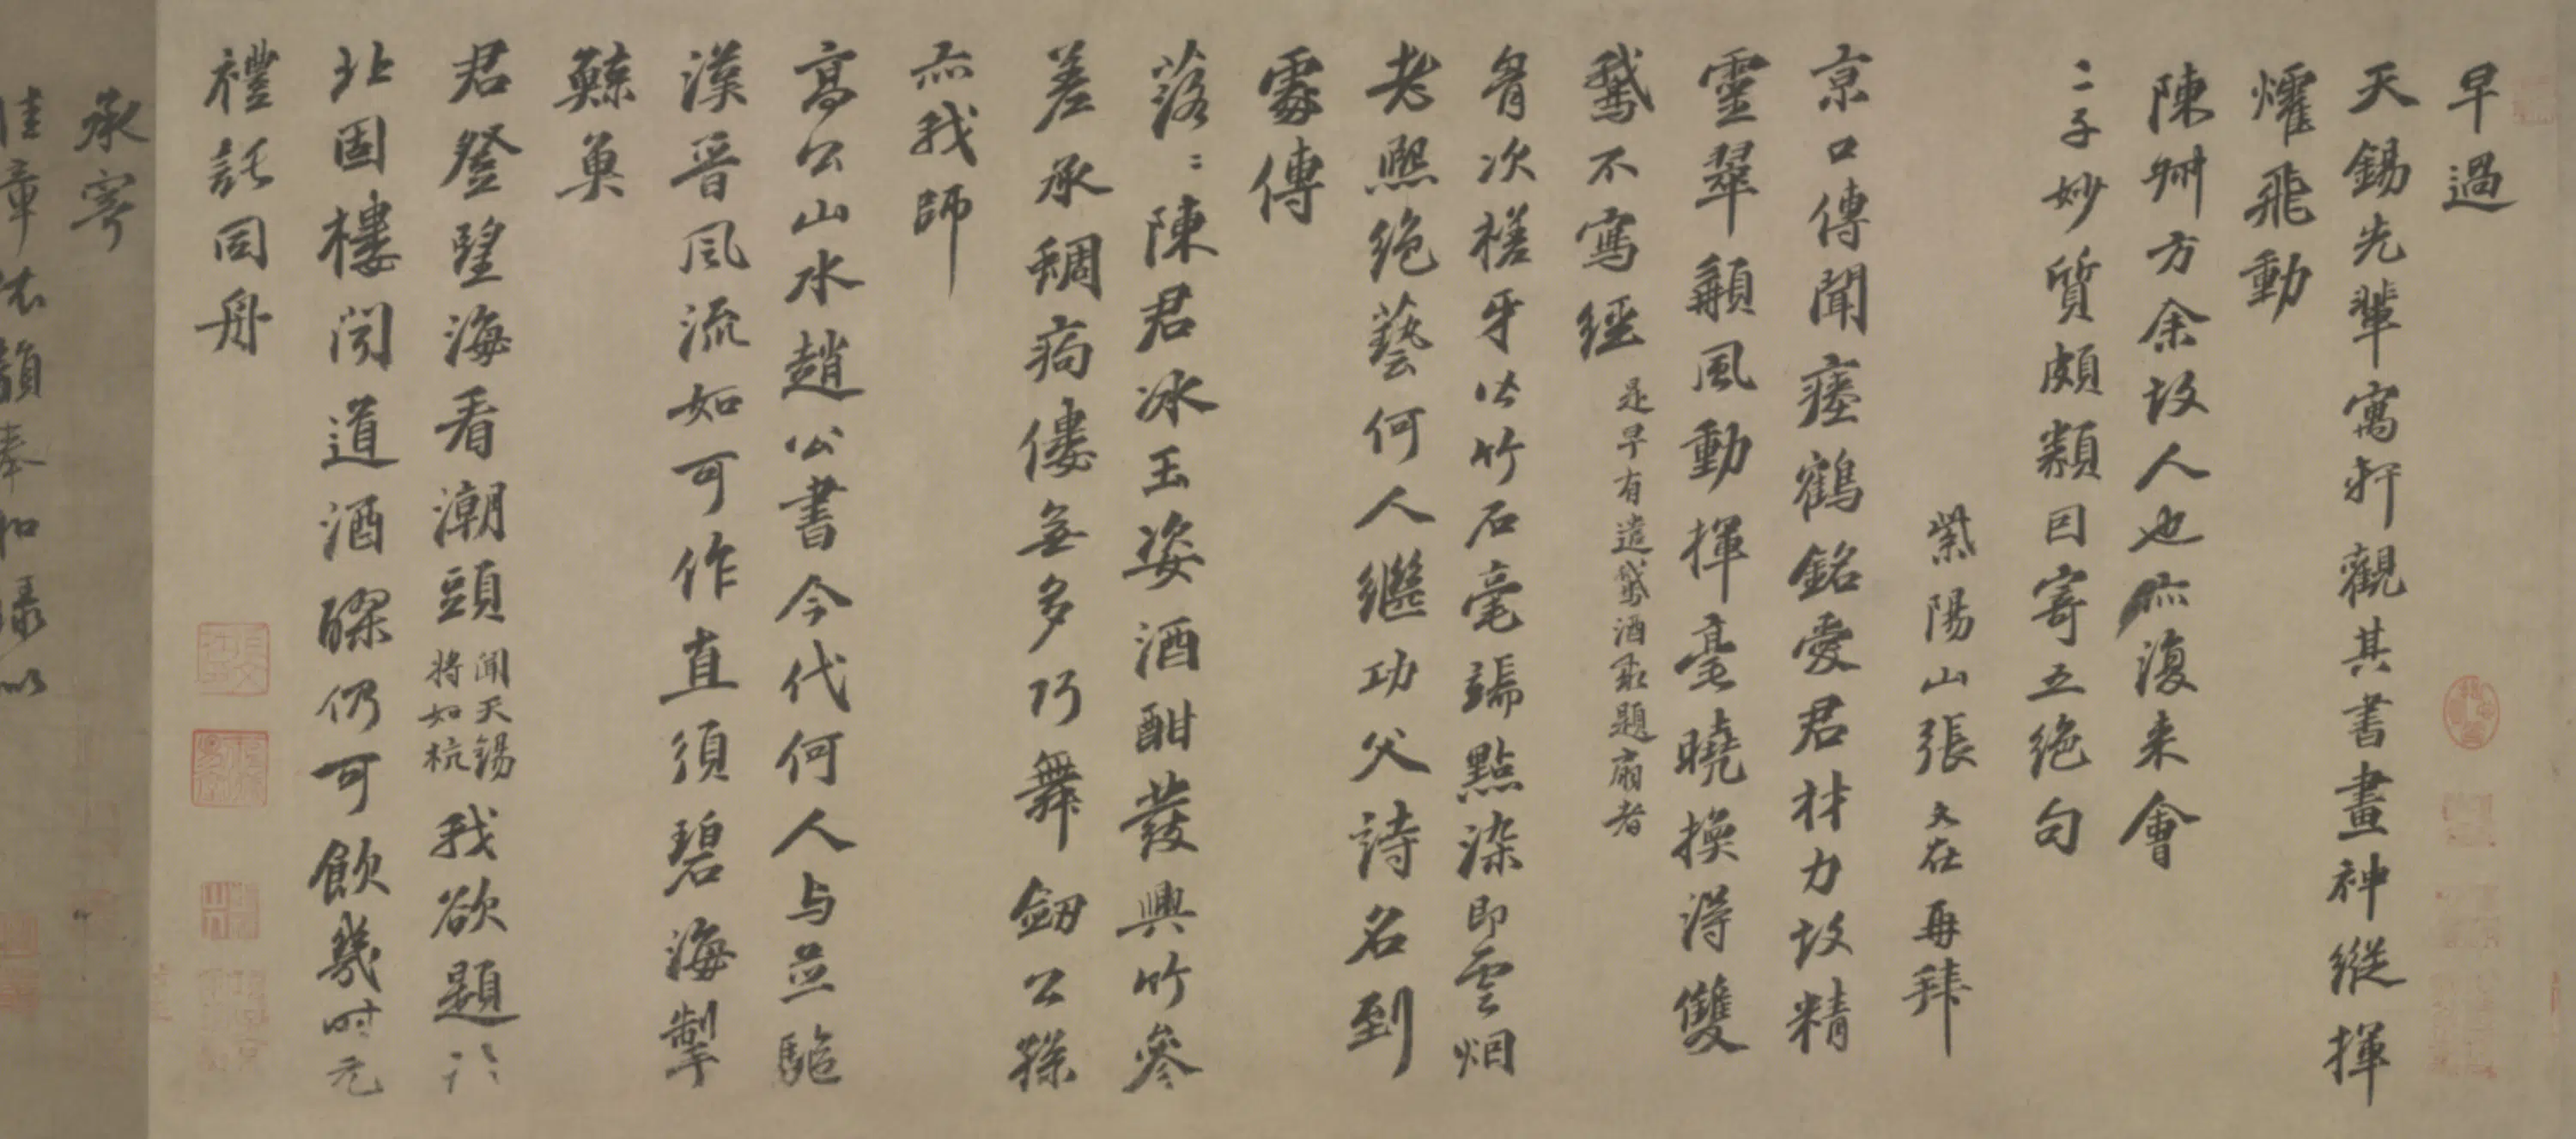 早過
天錫先輩寓軒觀其書畫神縱揮
燿飛動
陳卅方余故人也亦復来會
二子妙質頗類因寄五絶句
紫陽山張大在再拜
京口傳聞瘞鶴銘愛君材力故精
靈翠顙風動揮毫曉換得雙
鵝不寫經是早有遣鵝酒取題扇者
胷次槎牙出竹石毫端點染即雲烟
老熈绝藝何人繼功父詩名到
處傳
落〻陳君冰玉姿酒酣發興竹參
差承蜩痀僂無多巧舞劒公孫
亦我師
高公山水趙公書今代何人与並驅
漢晉風流如可作直須碧海掣
鯨魚
君登望海看潮頭聞天錫將如杭我欲題詩
北固樓閒道酒醪仍可飲幾时元
禮託同舟
承寄
佳章依韻奉和錄以